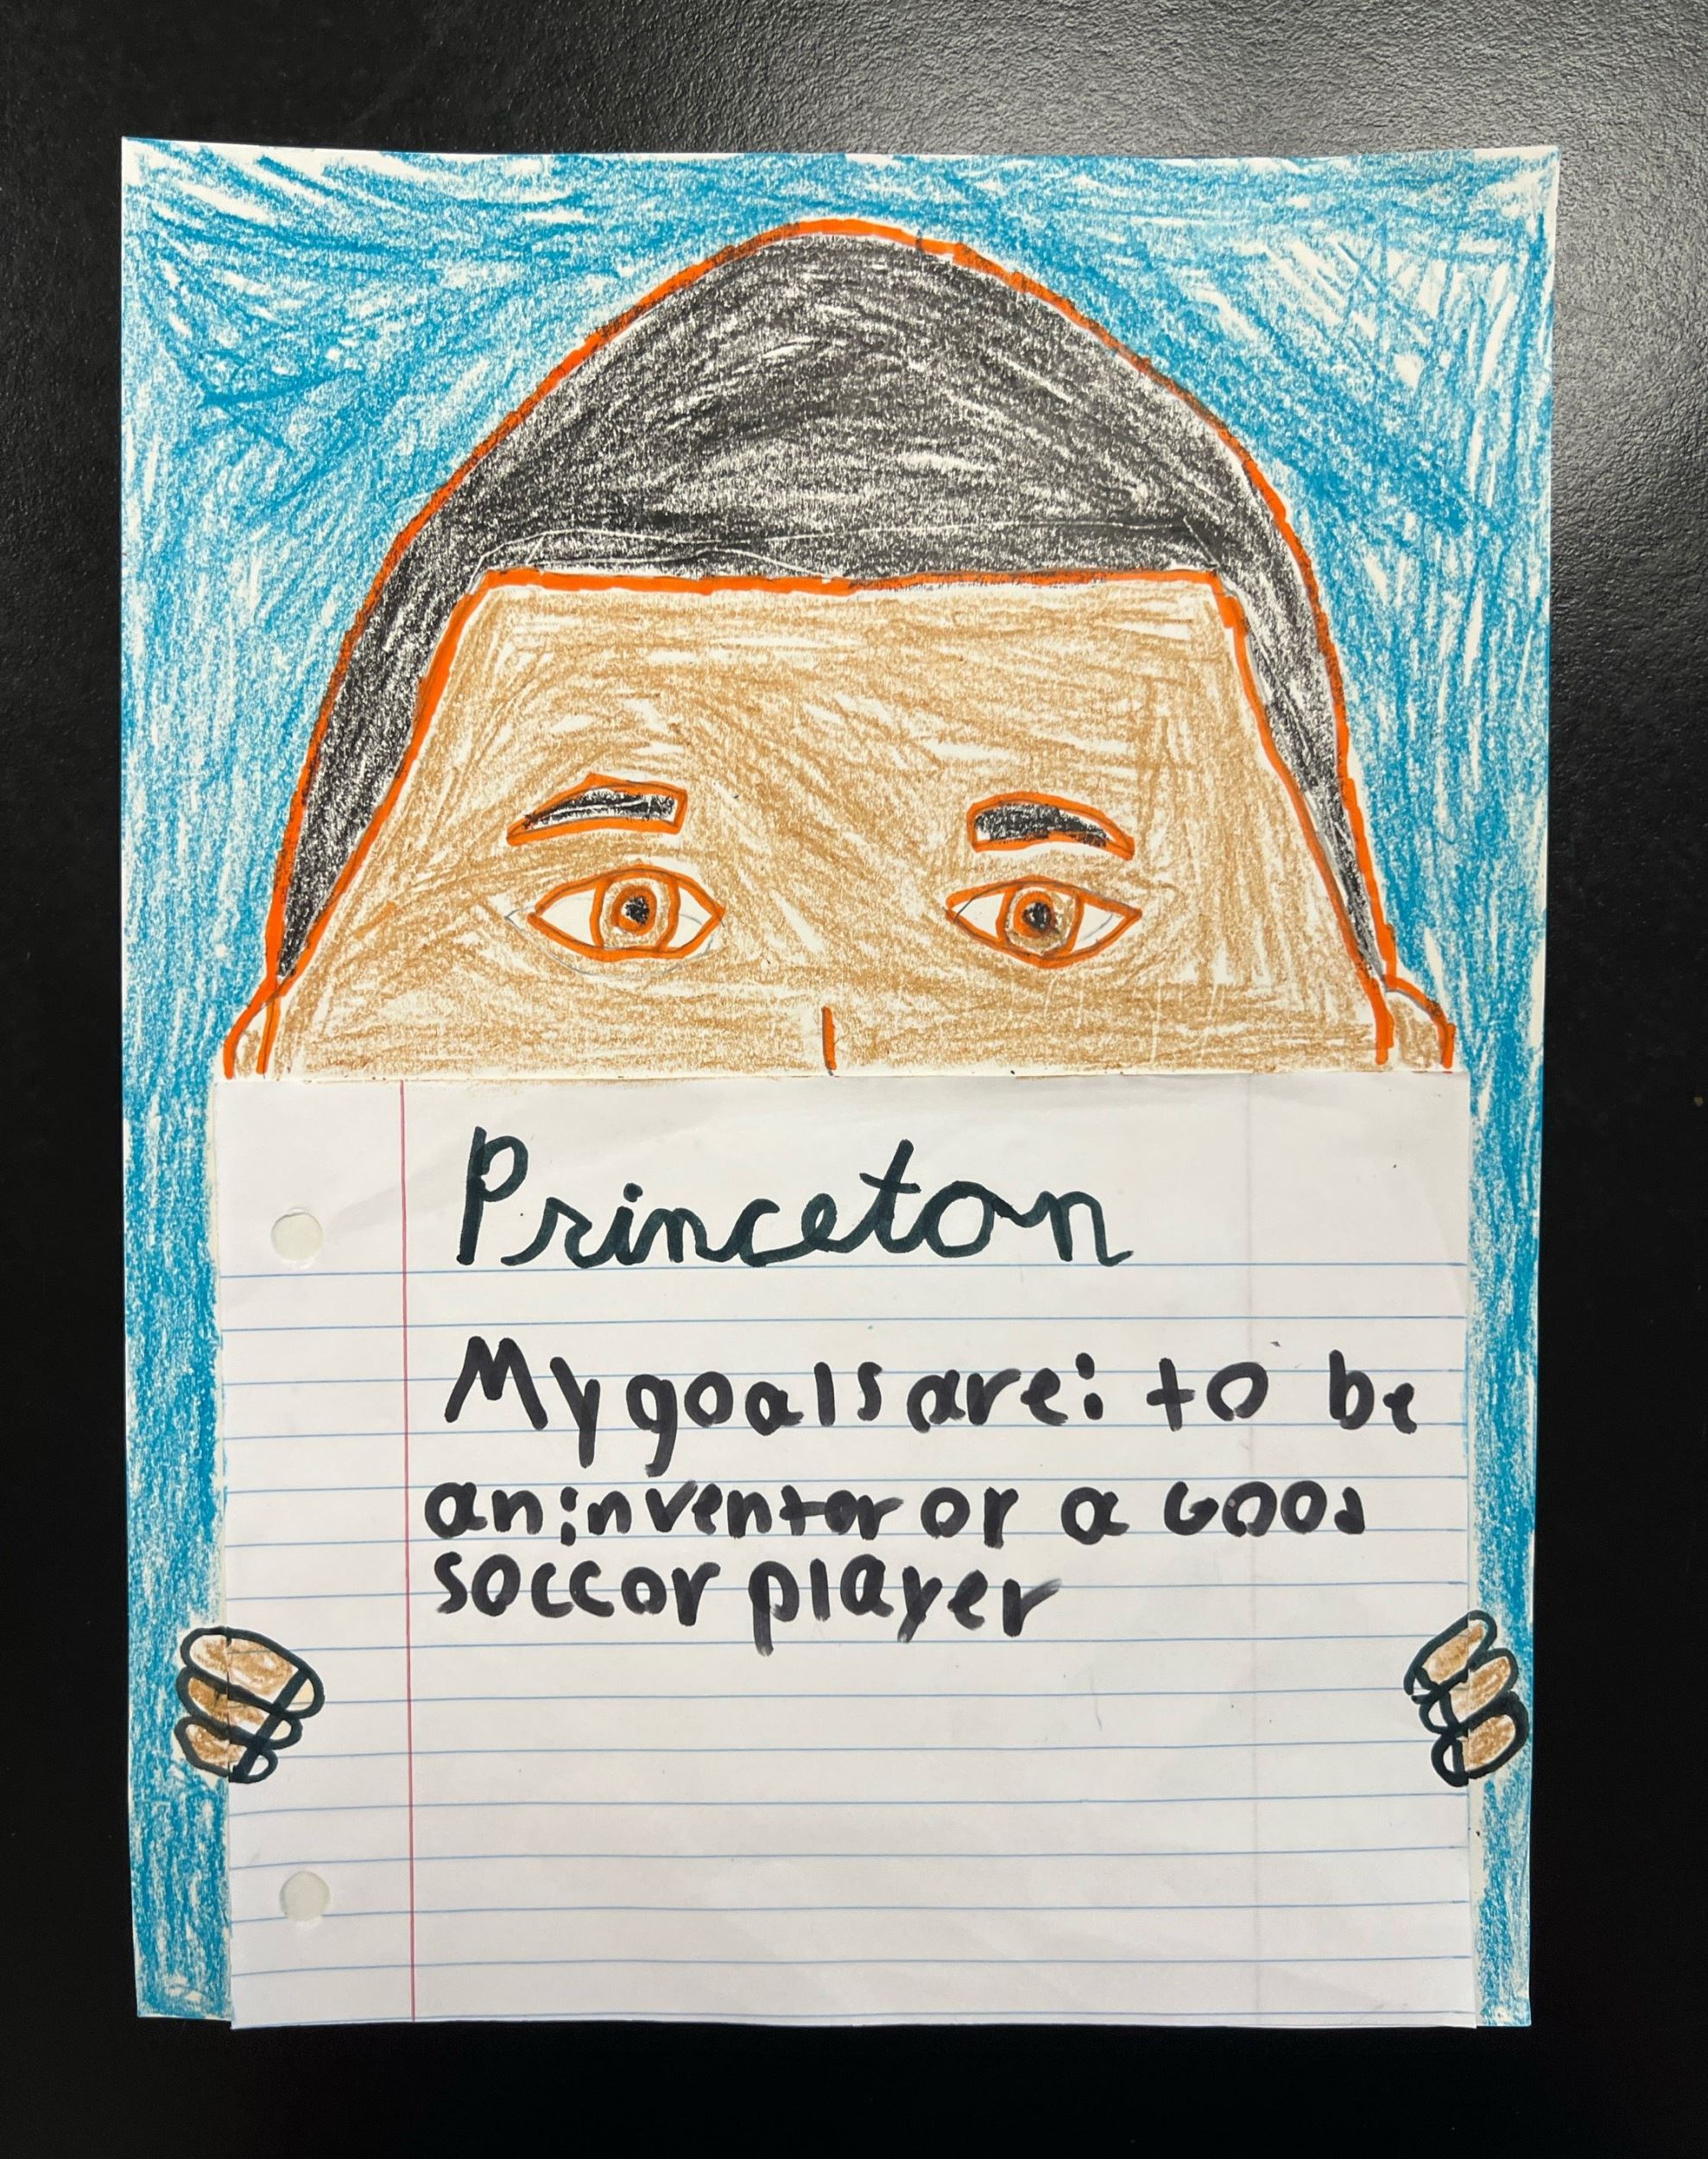 Princeton
My goals are: to be
an inventor or a Good
soccor player